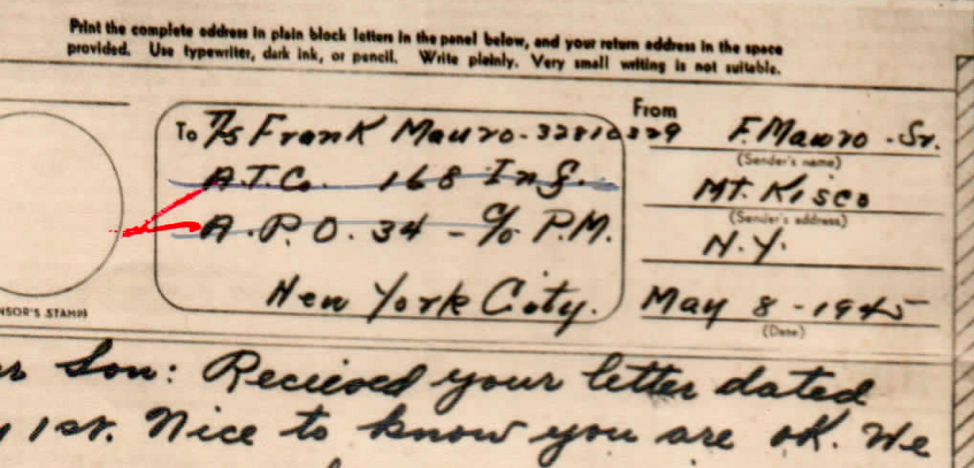 Print the complete address in plain block letters in the panel below, and your return address in the space
provided. Use typewriter, dark ink, or pencil. Write plainly. Very small writing is not suitable.
To T/5 Frank Mauro - 32810329
A.T.Co. 168 Inf.
A.P.O. 34 - c/o P.M.
New York City.
From
F. Mauro - Sr.
(Sender's name)
Mt. Kisco
(Sender's address)
N.Y.
May 8 - 1945
(Date)
NSOR'S STAMP)
r Son: Recieved your letter dated
1st. Nice to know you are ok. We